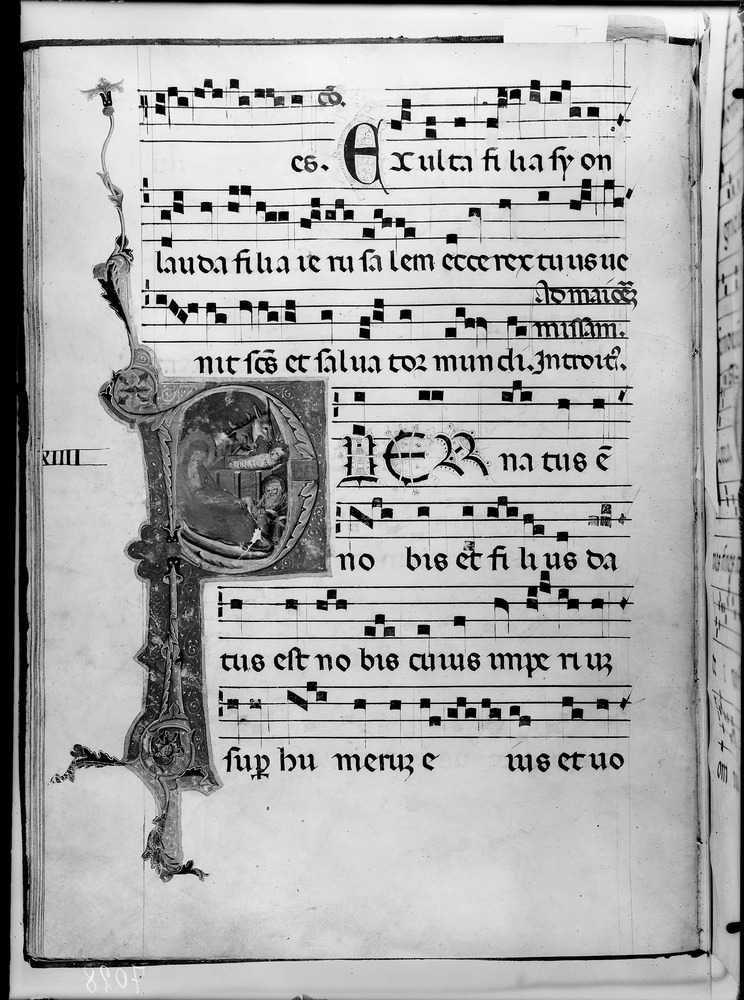 cō.
es. Exulta filia sy on
lauda filia ie ru sa lem ecce rex tuus ue
Ad maiorē
missam.
nit scs et salua tor mundi. Introit.
xiiii
PUER na tus ē
no bis et fi li us da
tus est no bis cuius impe rium
sup hu merum e ius et uo
7028